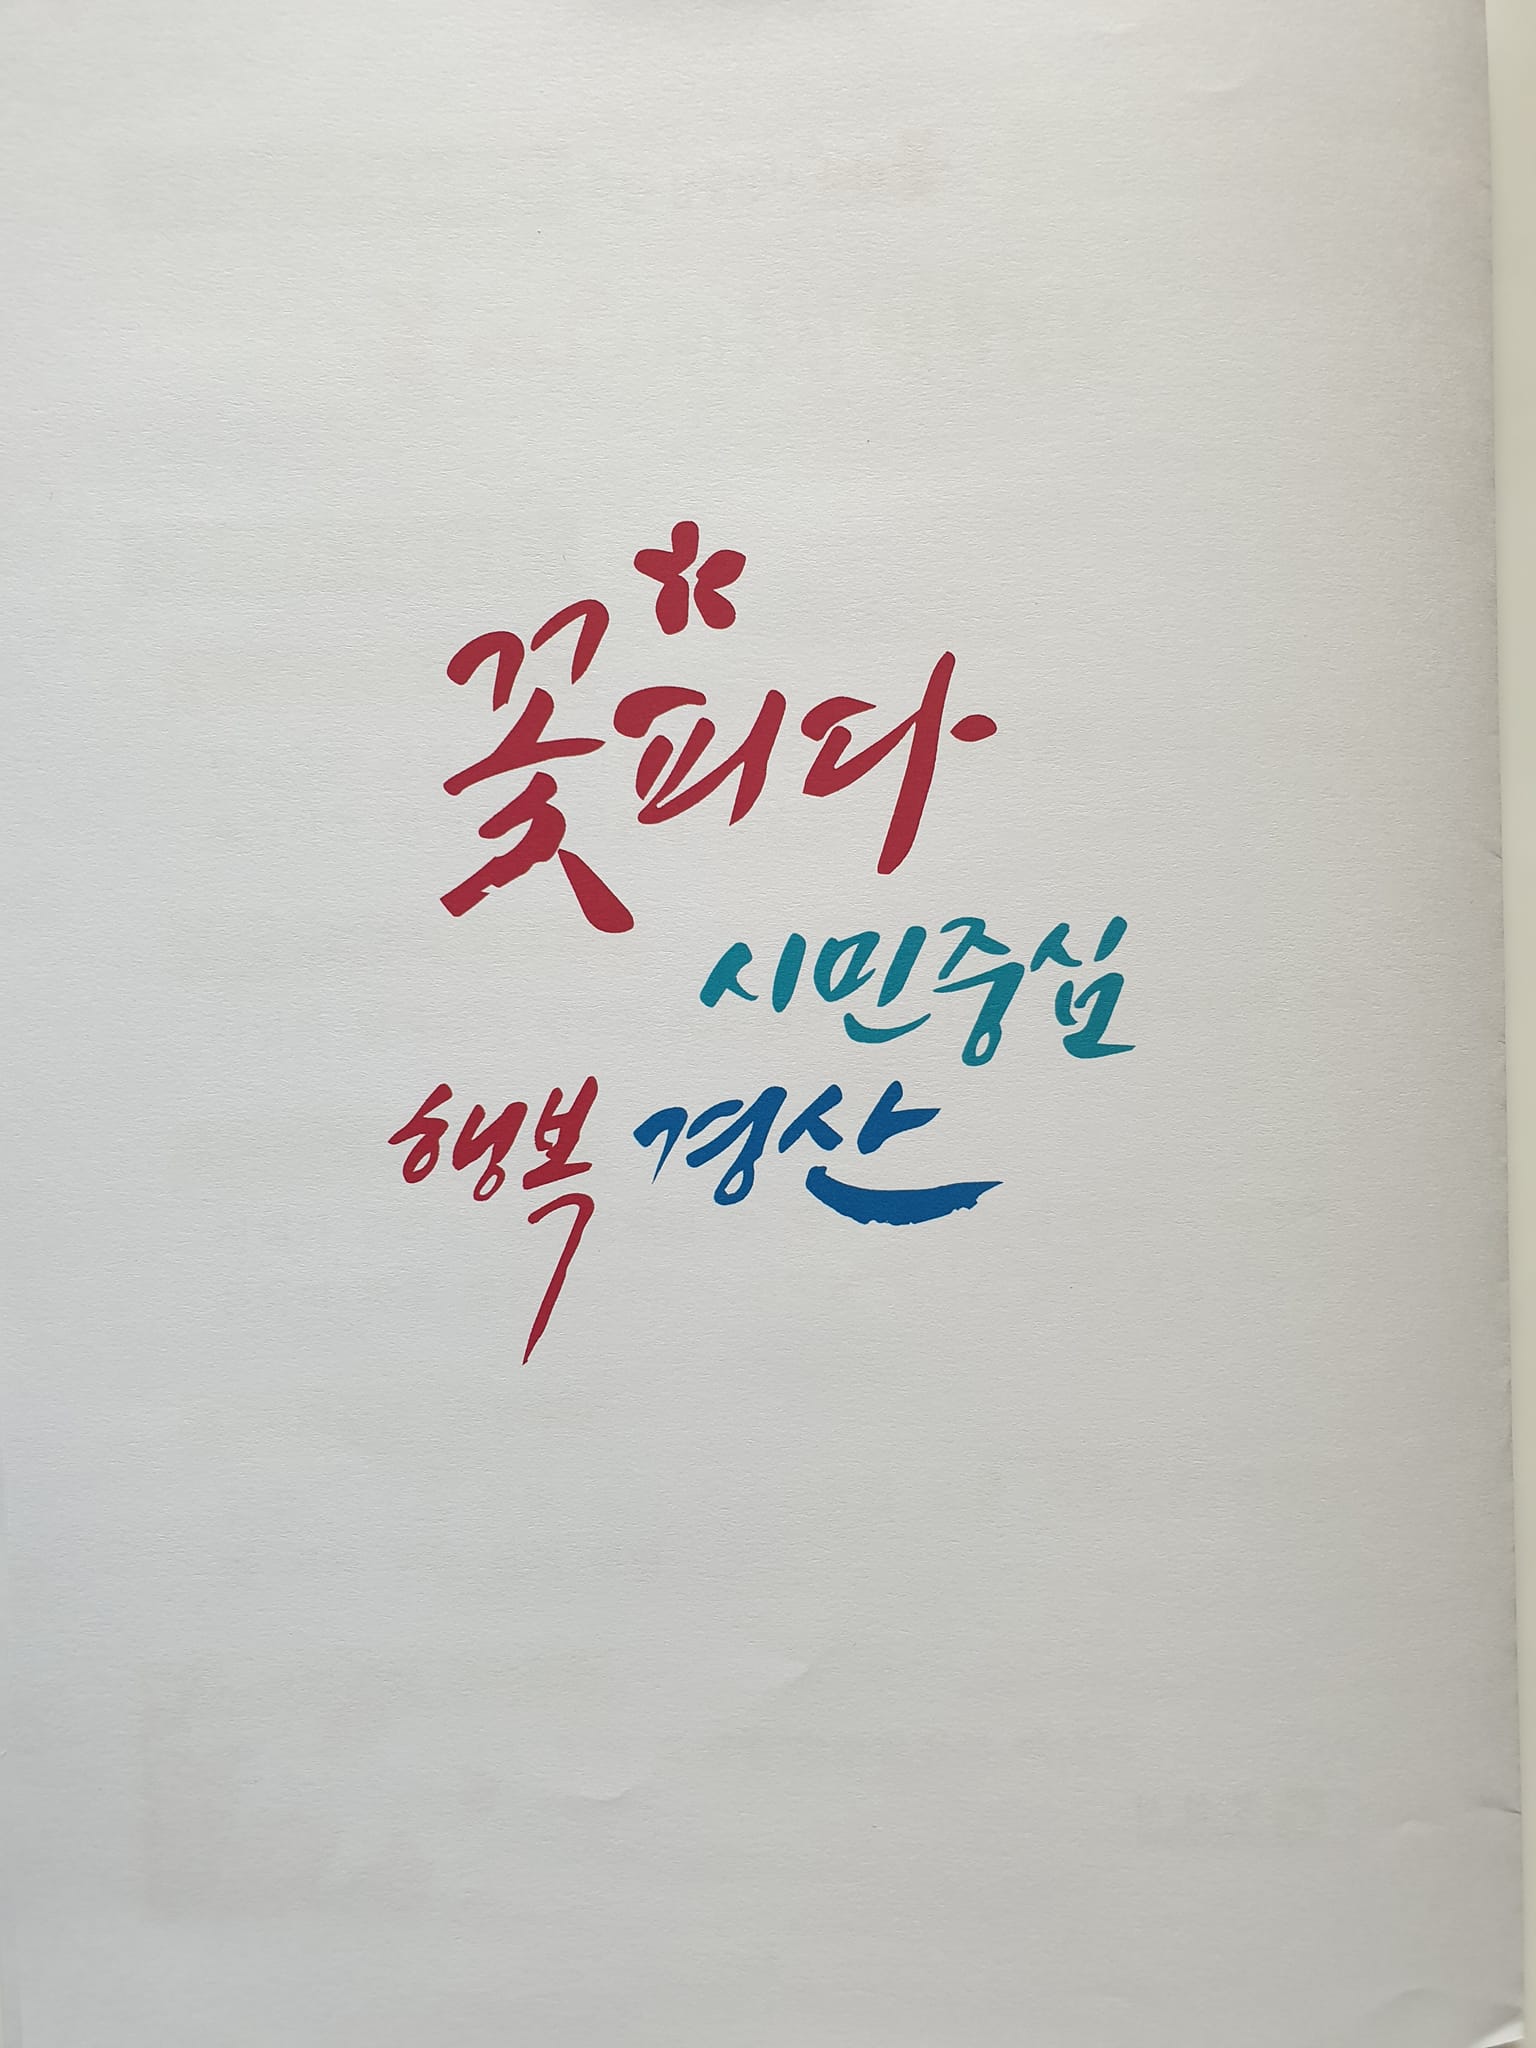 꽃피다
시민중심
행복 경산